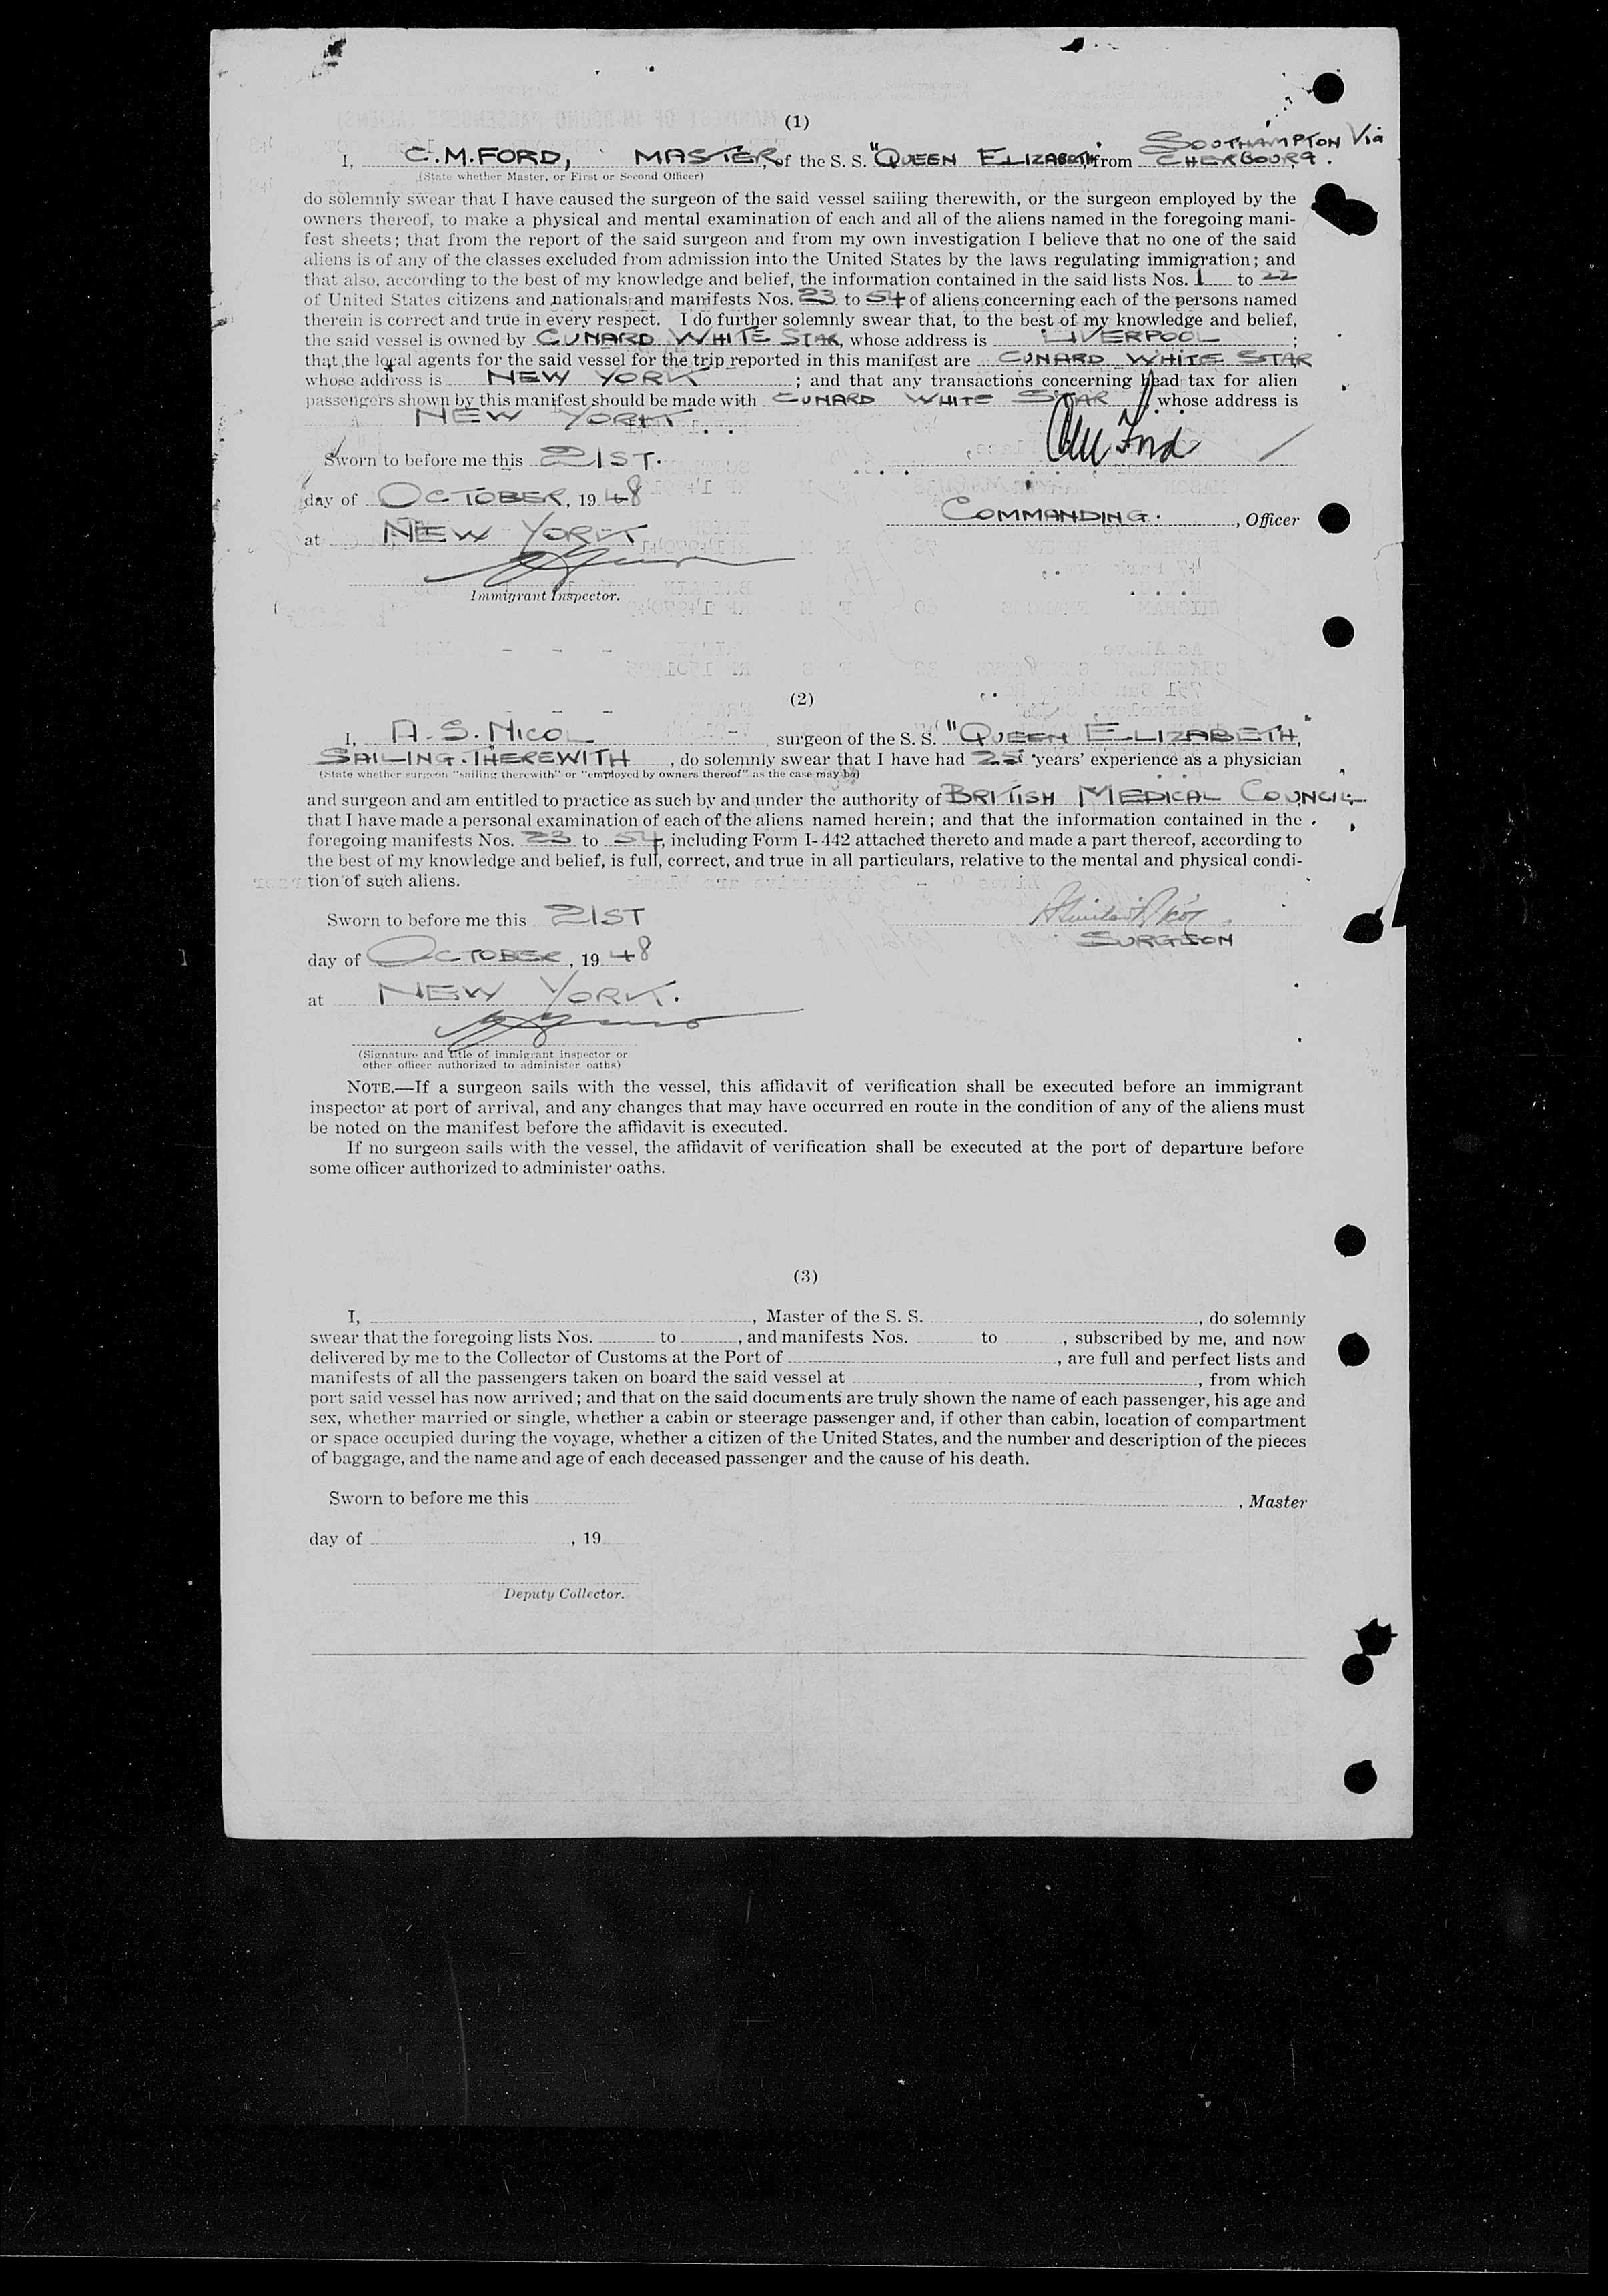 (1)
I, C.M. FORD, MASTER, of the S. S. "QUEEN ELIZABETH", from SOUTHAMPTON Via CHERBOURG.
(State whether Master, or First or Second Officer)
do solemnly swear that I have caused the surgeon of the said vessel sailing therewith, or the surgeon employed by the
owners thereof, to make a physical and mental examination of each and all of the aliens named in the foregoing mani-
fest sheets; that from the report of the said surgeon and from my own investigation I believe that no one of the said
aliens is of any of the classes excluded from admission into the United States by the laws regulating immigration; and
that also, according to the best of my knowledge and belief, the information contained in the said lists Nos. 1 to 22
of United States citizens and nationals and manifests Nos. 23 to 54 of aliens concerning each of the persons named
therein is correct and true in every respect. I do further solemnly swear that, to the best of my knowledge and belief,
the said vessel is owned by CUNARD WHITE STAR, whose address is LIVERPOOL ;
that the local agents for the said vessel for the trip reported in this manifest are CUNARD WHITE STAR
whose address is NEW YORK ; and that any transactions concerning head tax for alien
passengers shown by this manifest should be made with CUNARD WHITE STAR whose address is
NEW YORK.
Sworn to before me this 21ST.
day of OCTOBER, 1948
COMMANDING. , Officer
at NEW YORK
Immigrant Inspector.
(2)
I, A. S. NICOL surgeon of the S. S. "QUEEN ELIZABETH,"
SAILING THEREWITH , do solemnly swear that I have had 25 years' experience as a physician
(State whether surgeon "sailing therewith" or "employed by owners thereof" as the case may be)
and surgeon and am entitled to practice as such by and under the authority of BRITISH MEDICAL COUNCIL
that I have made a personal examination of each of the aliens named herein; and that the information contained in the
foregoing manifests Nos. 23 to 54, including Form I-442 attached thereto and made a part thereof, according to
the best of my knowledge and belief, is full, correct, and true in all particulars, relative to the mental and physical condi-
tion of such aliens.
Sworn to before me this 21ST
SURGEON
day of OCTOBER, 1948
at NEW YORK.
(Signature and title of immigrant inspector or
other officer authorized to administer oaths)
NOTE.—If a surgeon sails with the vessel, this affidavit of verification shall be executed before an immigrant
inspector at port of arrival, and any changes that may have occurred en route in the condition of any of the aliens must
be noted on the manifest before the affidavit is executed.
If no surgeon sails with the vessel, the affidavit of verification shall be executed at the port of departure before
some officer authorized to administer oaths.
(3)
I, , Master of the S. S. , do solemnly
swear that the foregoing lists Nos. to , and manifests Nos. to , subscribed by me, and now
delivered by me to the Collector of Customs at the Port of , are full and perfect lists and
manifests of all the passengers taken on board the said vessel at , from which
port said vessel has now arrived; and that on the said documents are truly shown the name of each passenger, his age and
sex, whether married or single, whether a cabin or steerage passenger and, if other than cabin, location of compartment
or space occupied during the voyage, whether a citizen of the United States, and the number and description of the pieces
of baggage, and the name and age of each deceased passenger and the cause of his death.
Sworn to before me this , Master
day of , 19
Deputy Collector.